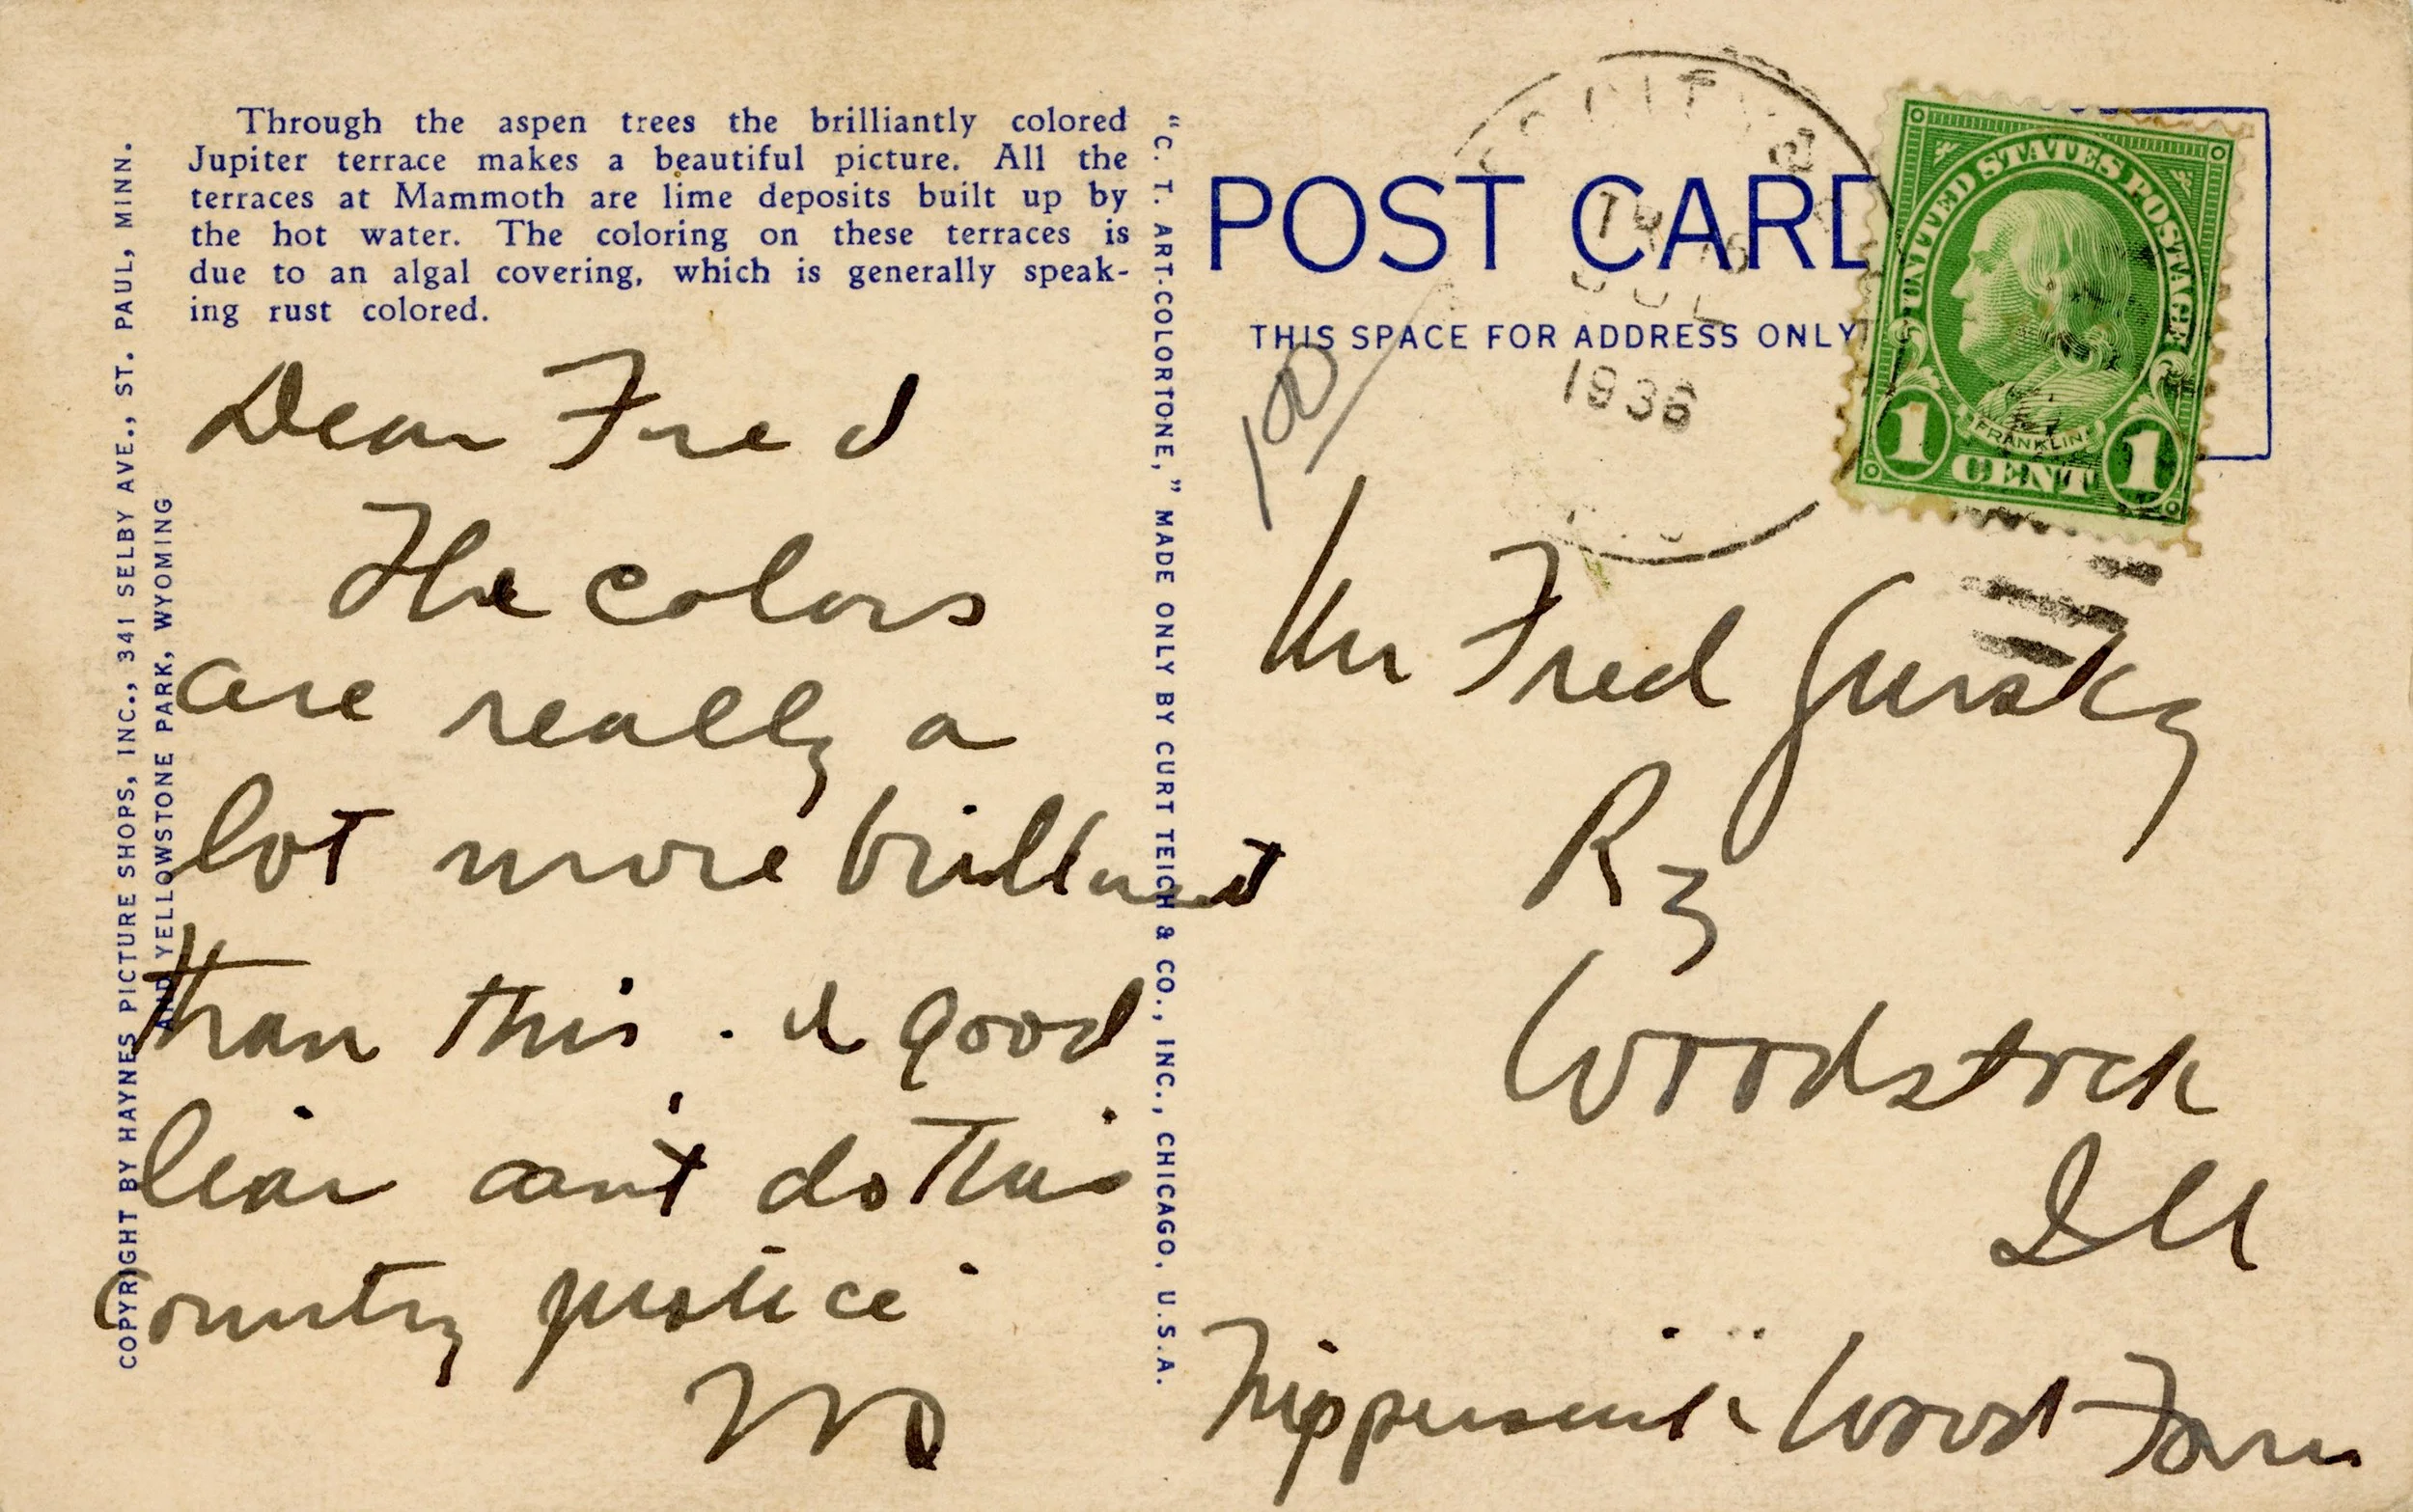 Through the aspen trees the brilliantly colored
Jupiter terrace makes a beautiful picture. All the
terraces at Mammoth are lime deposits built up by
the hot water. The coloring on these terraces is
due to an algal covering, which is generally speak-
ing rust colored.
COPYRIGHT BY HAYNES PICTURE SHOPS, INC., 341 SELBY AVE., ST. PAUL, MINN.
AND YELLOWSTONE PARK, WYOMING
Dear Fred
The colors
are really a
lot more brilliant
than this. A good
liar can't do this
Country justice
"C. T. ART-COLORTONE," MADE ONLY BY CURT TEICH & CO., INC., CHICAGO, U.S.A.
POST CARD
THIS SPACE FOR ADDRESS ONLY
JUL
1936
UNITED STATES POSTAGE
FRANKLIN
1 CENT 1
100
Mr Fred Gursky
R3
Woodstock
Ill
Nippersink Wood Farm